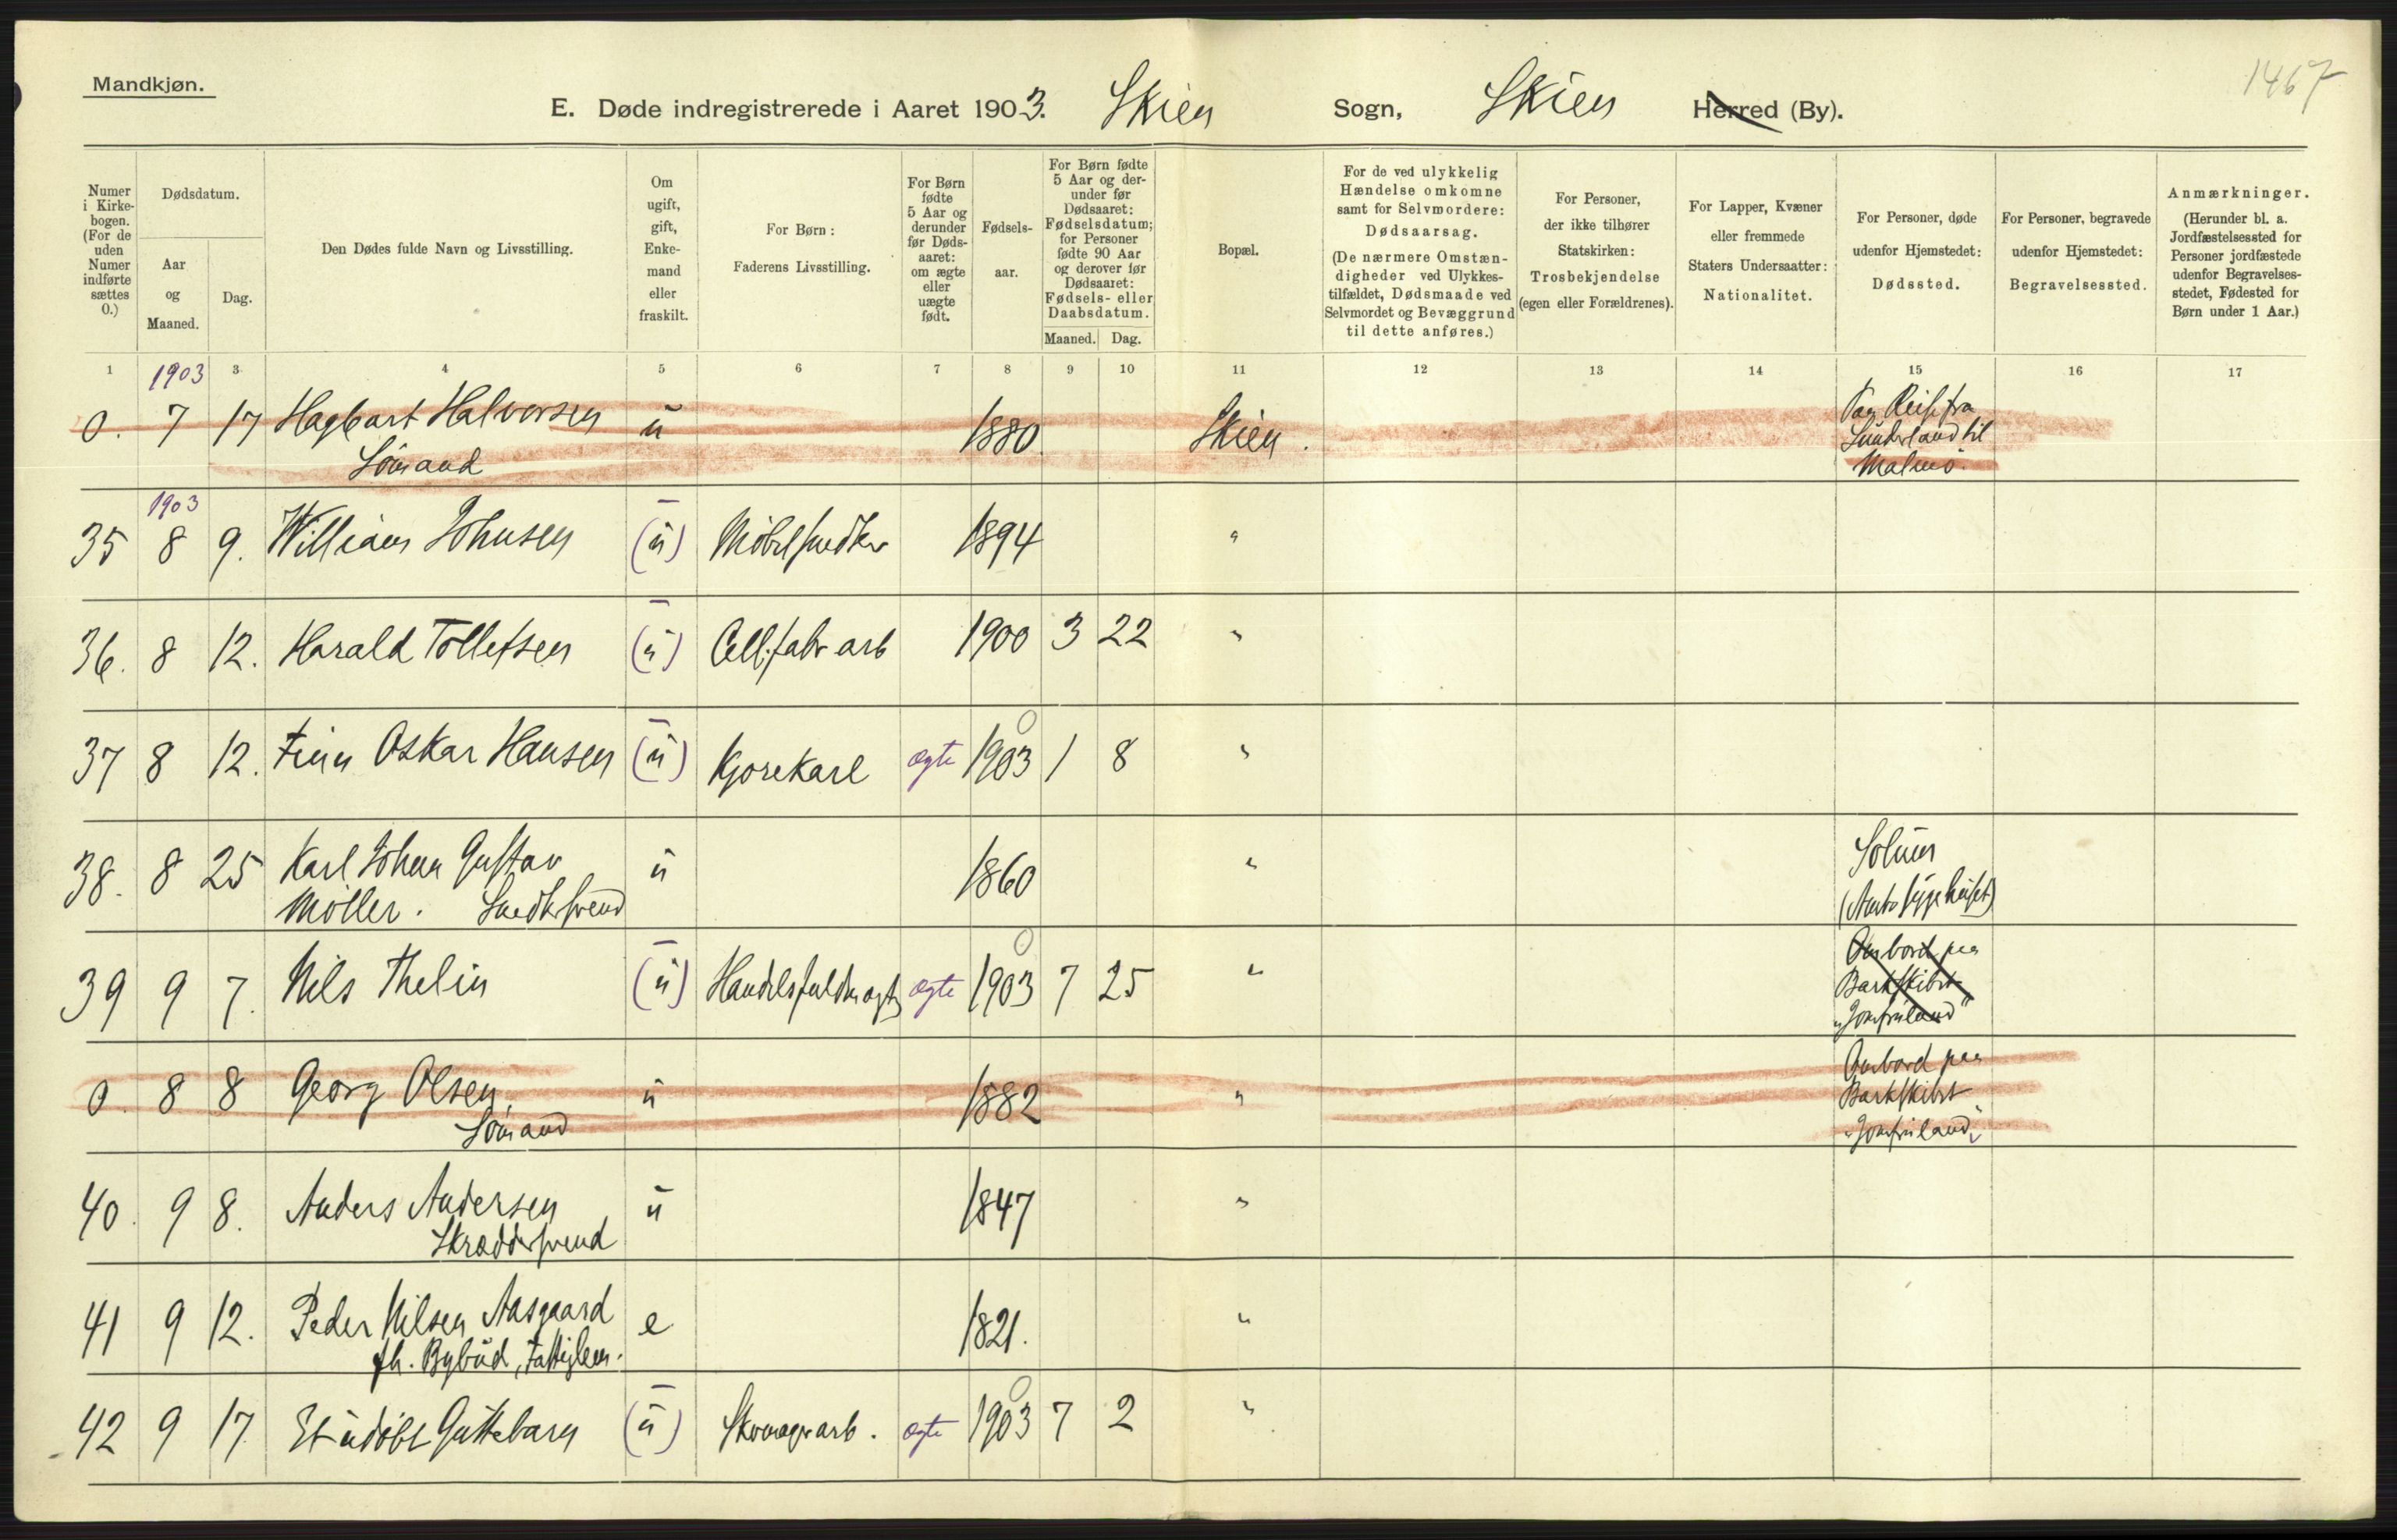 Mandkjøn.
1467
E. Døde indregistrerede i Aaret 1903. Skien Sogn, Skien Herred (By).
Numer
i Kirke-
bogen.
(For de
uden
Numer
indførte
sættes
0.)
Dødsdatum.
Aar
og
Maaned.
Dag.
Den Dødes fulde Navn og Livsstilling.
Om
ugift,
gift,
Enke-
mand
eller
fraskilt.
For Børn:
Faderens Livsstilling.
For Børn
fødte
5 Aar og
derunder
før Døds-
aaret:
om ægte
eller
uægte
født.
Fødsels-
aar.
For Børn fødte
5 Aar og der-
under før
Dødsaaret:
Fødselsdatum;
for Personer
fødte 90 Aar
og derover før
Dødsaaret:
Fødsels- eller
Daabsdatum.
Maaned. Dag.
Bopæl.
For de ved ulykkelig
Hændelse omkomne
samt for Selvmordere:
Dødsaarsag.
(De nærmere Omstæn-
digheder ved Ulykkes-
tilfældet, Dødsmaade ved
Selvmordet og Bevæggrund
til dette anføres.)
For Personer,
der ikke tilhører
Statskirken:
Trosbekjendelse
(egen eller Forældrenes).
For Lapper, Kvæner
eller fremmede
Staters Undersaatter:
Nationalitet.
For Personer, døde
udenfor Hjemstedet:
Dødssted.
For Personer, begravede
udenfor Hjemstedet:
Begravelsessted.
Anmærkninger.
(Herunder bl. a.
Jordfæstelsessted for
Personer jordfæstede
udenfor Begravelses-
stedet, Fødested for
Børn under 1 Aar.)
1 1903 3 4 5 6 7 8 9 10 11 12 13 14 15 16 17
0. 7 17 Hagbart Halvorsen u 1880. Skien. Paa Reise fra
Sømand Sunderland til
Malmö.
1903
35 8 9. William Johnsen (u) Møbelsnedker 1894 "
36. 8 12. Harald Tollefsen (u) Cell.fabr arb 1900 3 22 "
37 8 12. Finn Oskar Hansen (u) Kjørekarl ægte 1903 1 8 "
38. 8 25 Karl Johan Gustav u 1860 " Solum
Møller. Snedkersvend (Amtssygehuset)
39 9 7. Nils Thelin (u) Handelsfuldmægtig ægte 1903 7 25 " Ombord paa
Barkskibet
"Jomfruland"
0. 8 8 Georg Olsen, u 1882 " Ombord paa
Sømand Barkskibet
"Jomfruland"
40. 9 8. Anders Andersen u 1847 "
Skræddersvend
41 9 12. Peder Nilsen Aasgaard e 1821. "
fh. Bybud, Fattiglem.
42 9 17. Et udøbt Guttebarn (u) ægte 1903 7 2 "